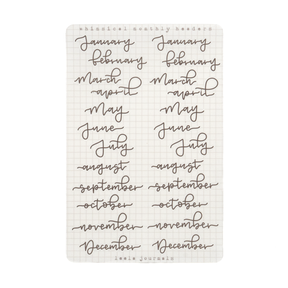 whimsical monthly headers
January January
february february
March March
april april
May May
June June
July July
august august
september september
october october
november november
December December
journals